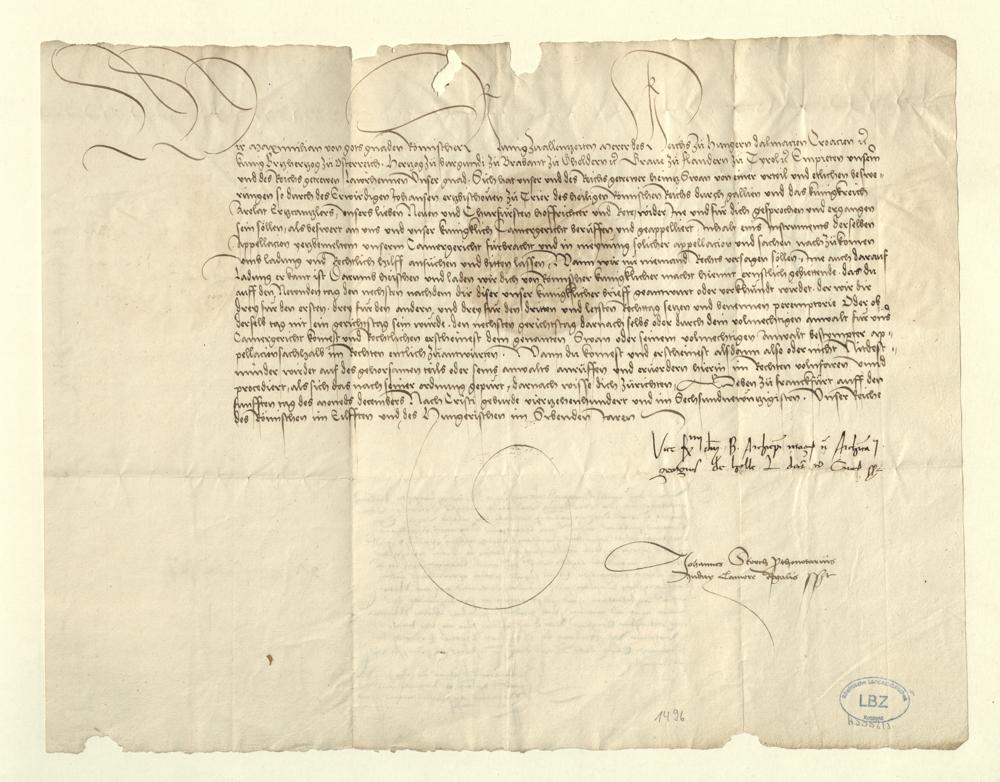 Wir Maximilian von gots gnaden Römischer Kunig zu allenntzeiten Merer des Reichs zu Hungern dalmacien Croacien etc
kunig Ertzhertzog zu Österreich Hertzog zu Burgundi zu Brabant zu Gheldern etc Graue zu Flandern zu Tirol etc Empieten unserm
und des Reichs getrewen Unser gnad. Sich hat unser und des Reichs getrewer heintz Swan von einer urteil und etlichen beswe-
rungen so durch des Erwirdigen Johansen ertzbischouen zu Trier des heiligen Römischen Reichs durch gallien und das kunigkreich
Arelat Ertzcanntzlers, unsers lieben Neuen und Churfürsten hoffrichter und Rete, wider Ine und für dich gesprochen und ergangen
sein söllen, als beswert an uns und unser kuniglich Camergericht berüffen und geappelliert Inhalt eins Instruments derselben
Appellacion unserm Camergericht fürbracht und in meynung solicher appellacion und sachen nachzukomen
umb ladung und Rechtlich hilff anrüchen und bitten lassen, Wann wir nu niemand Rechts versagen sollen, Ime auch darauf
ladung erkant ist Darumb heischen und laden wir dich von Römischer kuniglicher macht hiemit ernstlich gebietende. das du
auff den Newnden tag den nechsten nachdem dir diser unser kuniglicher brieff geantwurt oder verkhundt wirdet. der wir dir
drey für den ersten. drey für den andern, und drey für den dritten und letsten Rechttag setzen und benennen peremptorie Oder ob
derselb tag nit ein gerichtstag sein wurde. den nechsten gerichtstag darnach selbs oder durch dein volmechtigen anwalt für uns
Camergericht komest und Rechtlichen erscheinest dem genanten Swan oder seinem volmechtigen Anwalt bestympter ap-
pellacinsachhalb im Rechten entlich zu antwurten. Wann du komest und erscheinest alsdann also oder nicht Nichtdest-
mynder wirdet auf des gehorsamen teils oder seins anwalts anrüffen und eruordern hierin im Rechten volnfaren unnd
procediert, als sich das nach seiner ordnung gepürt, darnach wisse dich zurichten, Geben zu Franckfurt auff den
funfften tag des monds decembers Nach Cristi geburde viertzehenhundert und im Sechsundnewntzigisten. Unser Reiche
des Römischen im Eilfften und des Hungerischen im Sibenden Jaren
Vice
georgius de helle
Johannes Storch Prothonotarius
Judicii Camere Regalis sspt
1496
LBZ
Koblenz